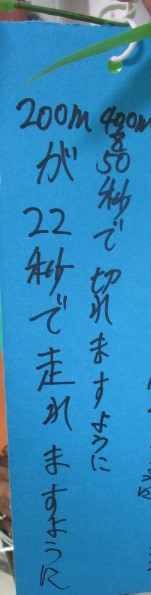 400mを50秒で切れますように
200mが22秒で走れますように